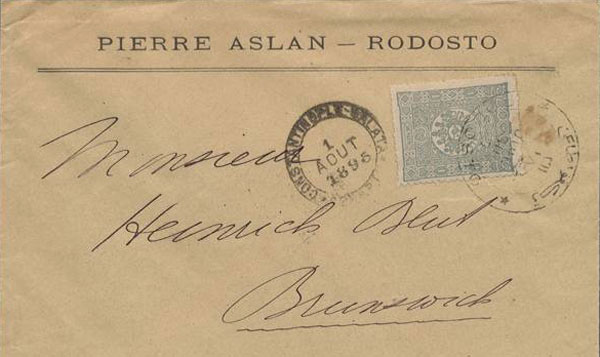 PIERRE ASLAN — RODOSTO
CONSTANTINOPLE-GALATA
1
AOUT
1895
Monsieur
Heinrich Blut
Brunswick